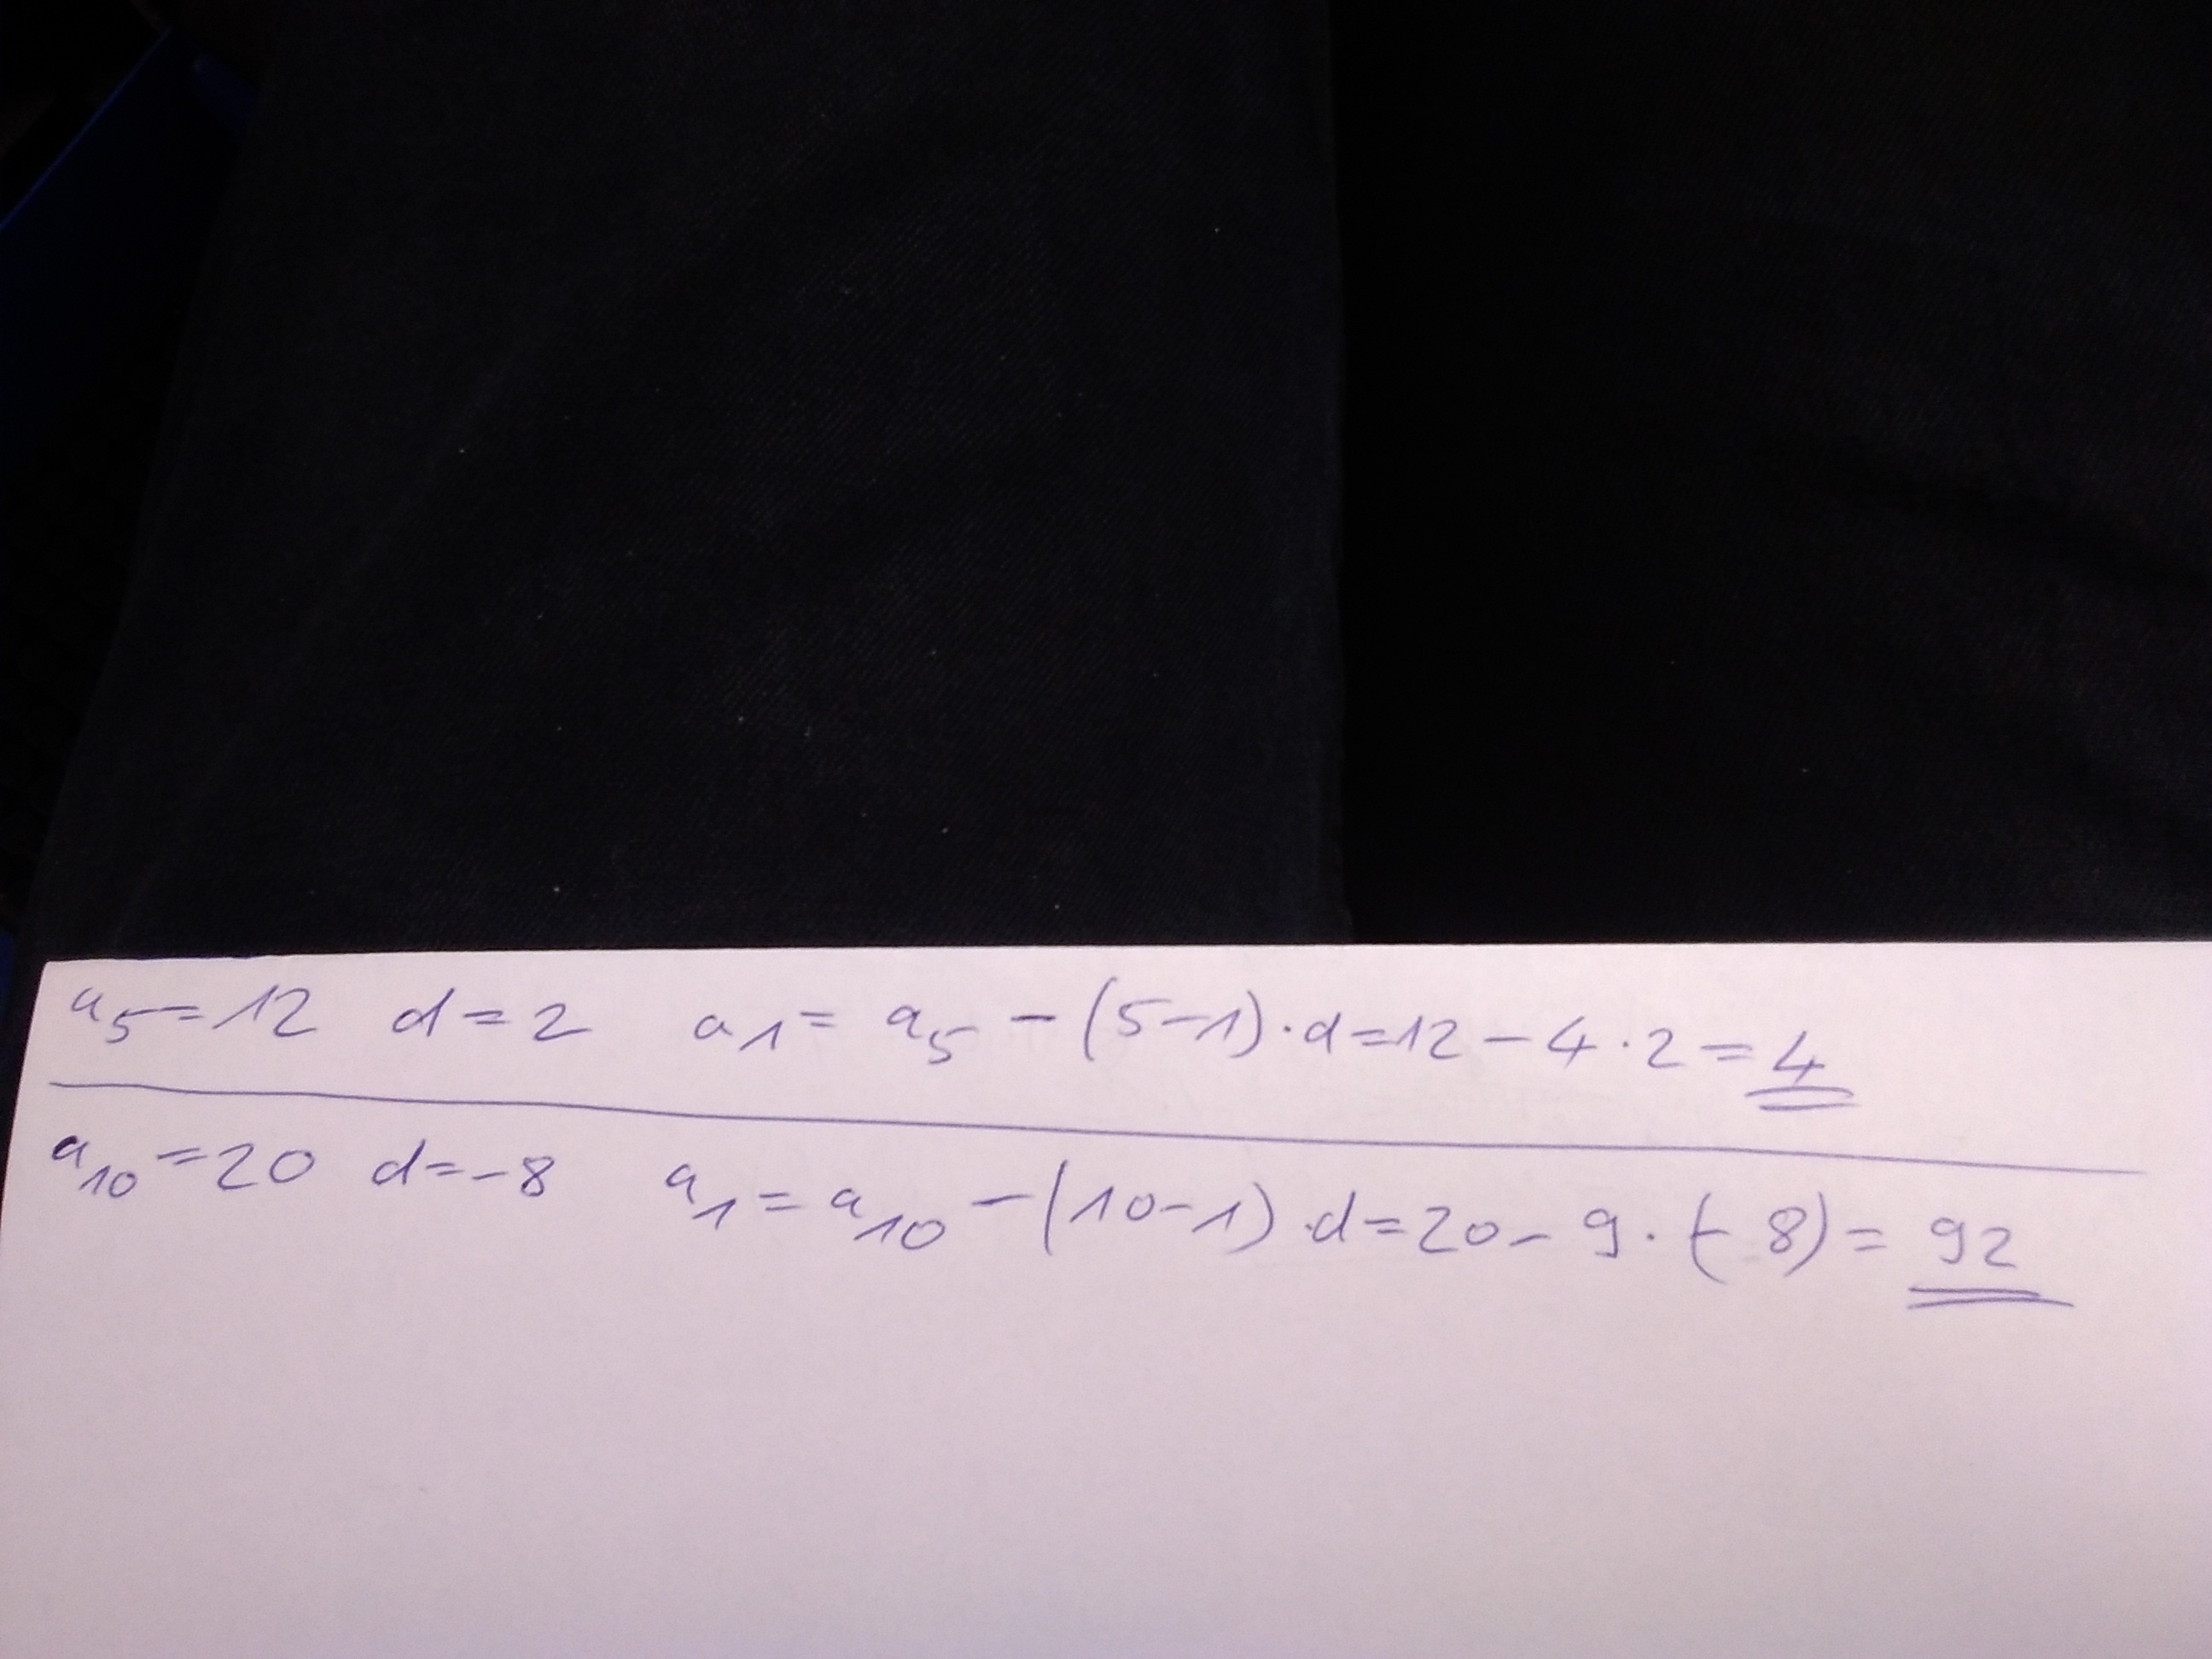 a₅=12 d=2 a₁= a₅ -(5-1)·d=12-4·2=4
a₁₀=20 d=-8 a₁=a₁₀-(10-1)·d=20-9·(-8)=92